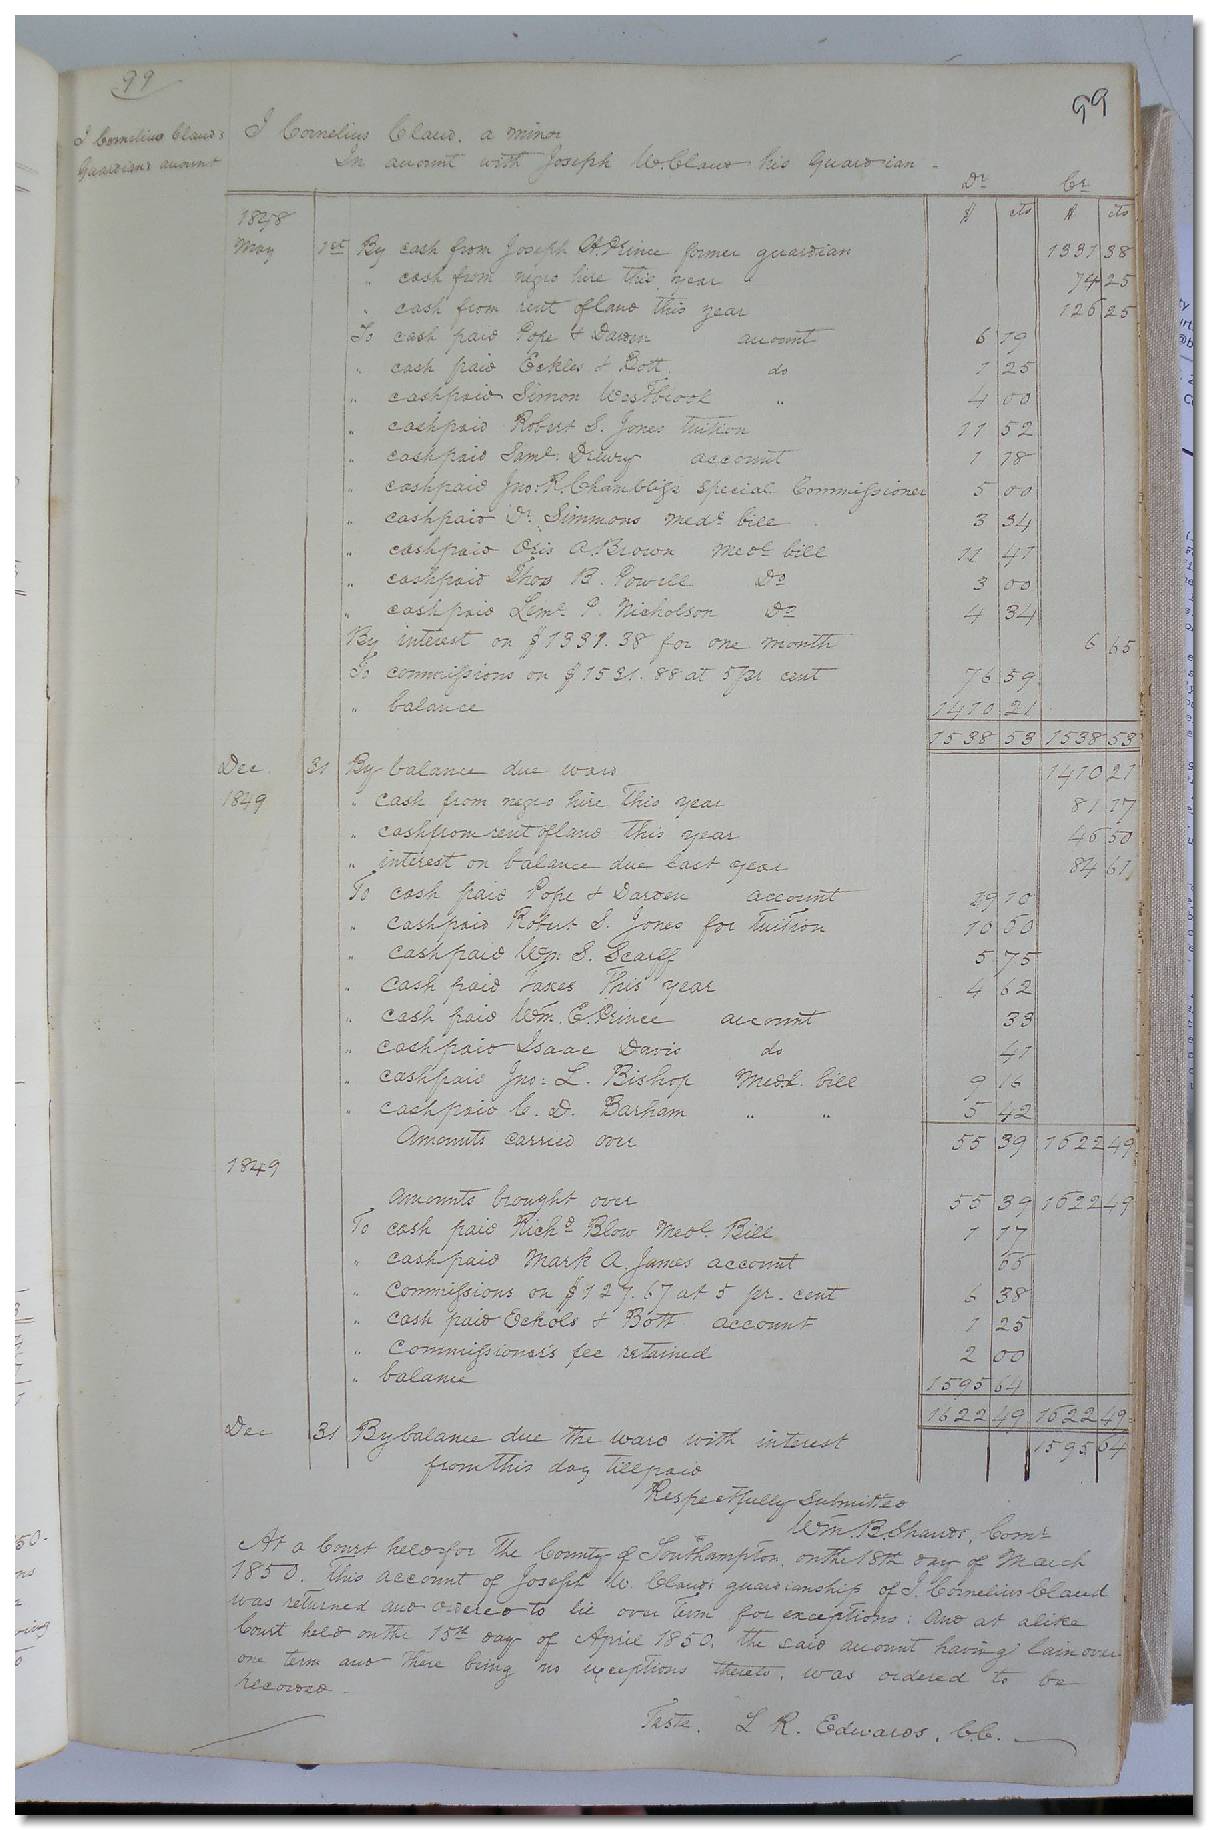 99
99
J Cornelius Claud's
Guardians account
J Cornelius Claud. a minor
In account with Joseph W. Claud his Guardian
Dr Cr
$ cts $ cts
1848
May 1st By cash from Joseph H. Prince former guardian 1331 38
" cash from negro hire this year 74 25
" cash from rent of land this year 126 25
To cash paid Pope & Darden account 6 19
" cash paid Eckles & Bott do 1 25
" cash paid Simon Westbrook " 4 00
" cash paid Robert S. Jones tuition 11 52
" cash paid Saml. Drewry account 1 18
" cash paid Jno: R. Chambliss Special Commissioner 5 00
" cash paid Dr. Simmons medl bill 3 34
" cash paid Oris A. Brown medl bill 11 41
" cash paid Thos B. Powell Do 3 00
" cash paid Leml P. Nicholson Do 4 34
By interest on $1331.38 for one month 6 65
To commissions on $1531.88 at 5 per cent 76 59
" balance 1410 21
1538 53 1538 53
Dec. 31 By balance due ward 1410 21
1849 " cash from negro hire this year 81 17
" cash from rent of land this year 46 50
" interest on balance due last year 84 61
To cash paid Pope & Darden account 29 10
" cash paid Robert S. Jones for tuition 10 50
" cash paid Wm. S. Scarff 5 75
" Cash paid taxes this year 4 62
" cash paid Wm. E. Prince account 33
" cash paid Isaac Davis do 41
" cash paid Jno: L. Bishop Medl. bill 9 16
" cash paid C. D. Barham " " 5 42
Amounts carried over 55 39 1622 49
1849
Amounts brought over 55 39 1622 49
To cash paid Richd Blow Medl. Bill 1 17
" cash paid Mark A. James account 55
" Commissions on $127.67 at 5 pr. cent 6 38
" cash paid Echols & Bott account 1 25
" Commissioner's fee retained 2 00
" balance 1595 64
1622 49 1622 49
Dec 31 By balance due the ward with interest 1595 64
from this day till paid
Respectfully Submitted
Wm. B. Shands, Comr
At a Court held for the County of Southampton, on the 18th day of March
1850. This account of Joseph W. Claud's guardianship of J. Cornelius Claud
was returned and ordered to lie over Term for exceptions: And at alike
Court held on the 15th day of April 1850. the said account having lain over
one term and there being no exceptions thereto, was ordered to be
recorded.
Teste. L R. Edwards, C.C.